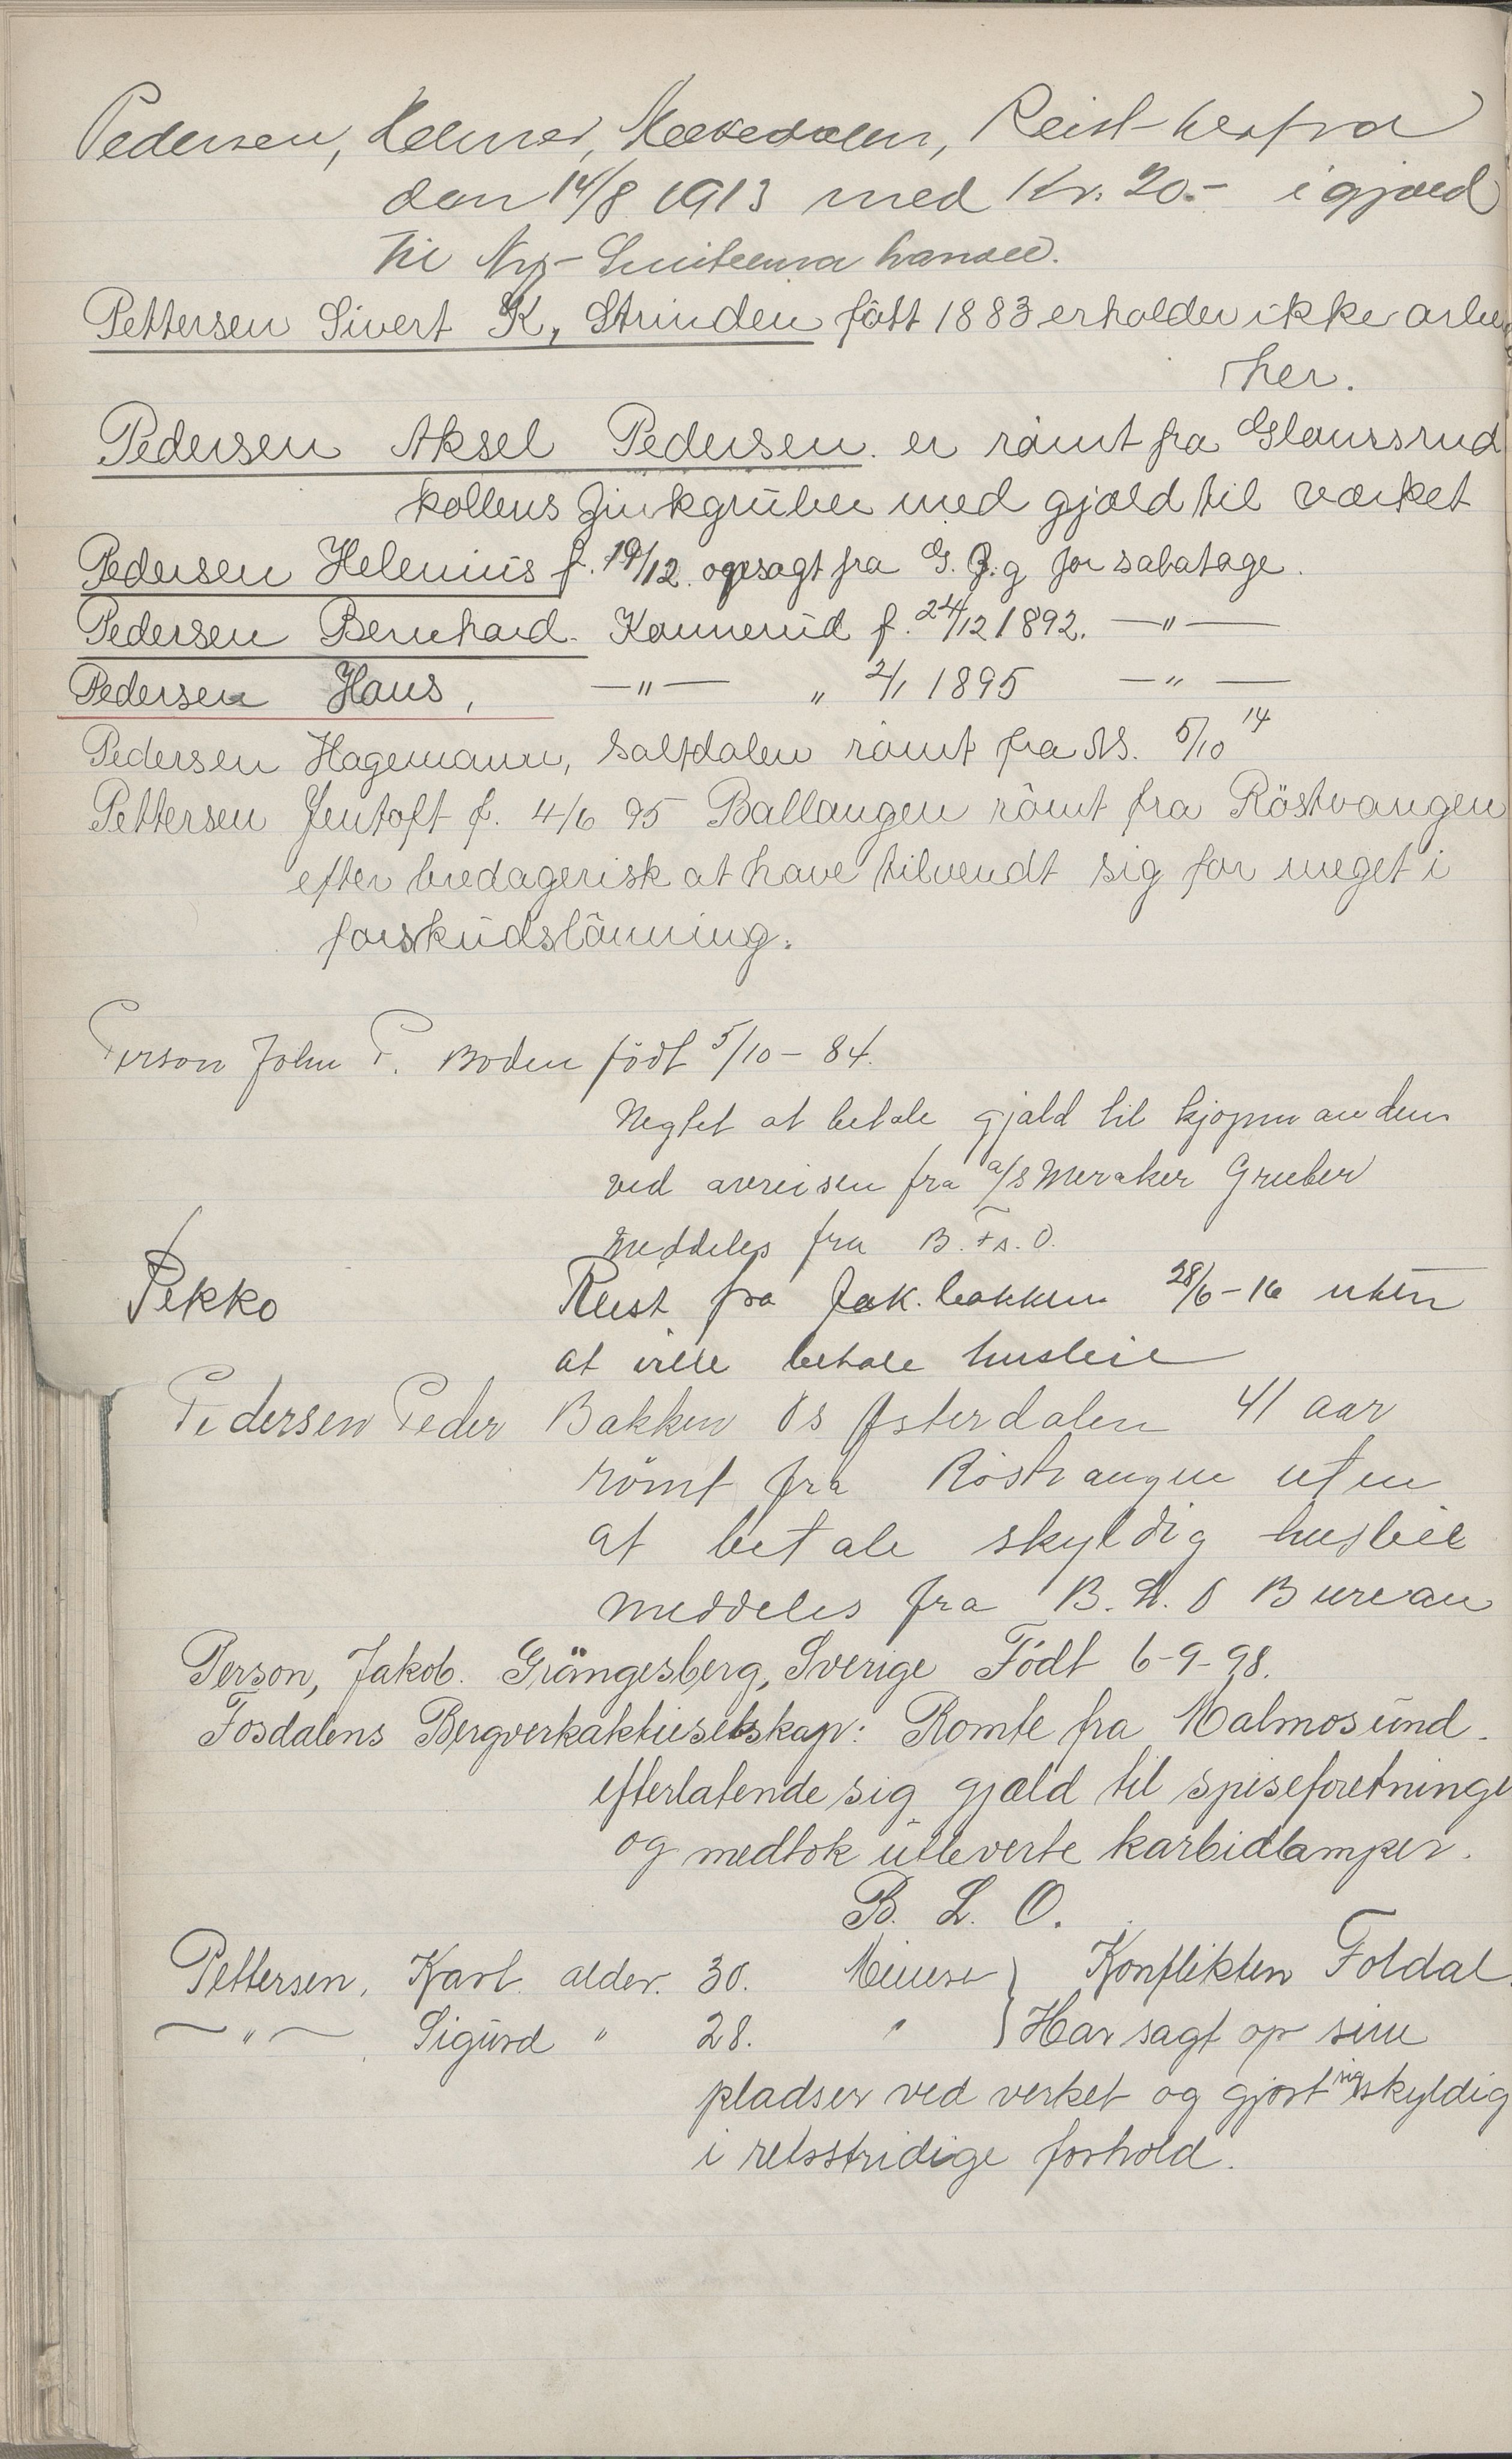 Pedersen, Helmer, Reist herfra
den 14/8 1913 med Kr. 20.- i gjæld
til Ny-Sulitelma handel.
Pettersen Sivert K, Strinden fôtt 1883 erholder ikke arbei
her.
Pedersen Aksel Pedersen. er rômt fra Glomsrud
kollens Zinkgruber med gjæld til værket
Pedersen Helenius f. 19/12. opsagt fra G. Z. g for sabatage.
Pedersen Bernhard. Konnerud f. 24/12 1892. —"—
Pedersen Hans, —"— " 2/1 1895 —"—
Pedersen Hagemann, Saltdalen rômt fra NS. 5/10 14
Pettersen Jentoft f. 4/6 95 Ballangen rômt fra Röstvangen
efter bedragerisk at have tilvendt sig for meget i
forskudslônning.
Person John P. Boden födt 5/10 - 84.
Neglet at betale gjæld til kjøpmanden
ved avreisen fra a/s Meraker Gruber
meddeles fra B. L. O.
Pekko Reist fra Jak. bakken 28/6-16 uten
at ville betale husleie
Pedersen Peder Bakken Os Østerdalen 41 aar
römt fra Röstvangen uten
at betale skyldig husleie
meddeles fra B. L. O Bureau
Person, Jakob. Grängesberg, Sverige Födt 6-9-98.
Fosdalens Bergverkaktieselskap: Romte fra Malmosund.
efterlatende sig gjæld til spiseforetninge
og medtok utleverte karbidlamper.
B. L. O.
Pettersen, Karl. alder. 30. Minere } Konflikten Foldal.
—"— Sigurd " 28. " } Har sagt op sine
pladser ved verket og gjort sig skyldig
i retsstridige forhold.